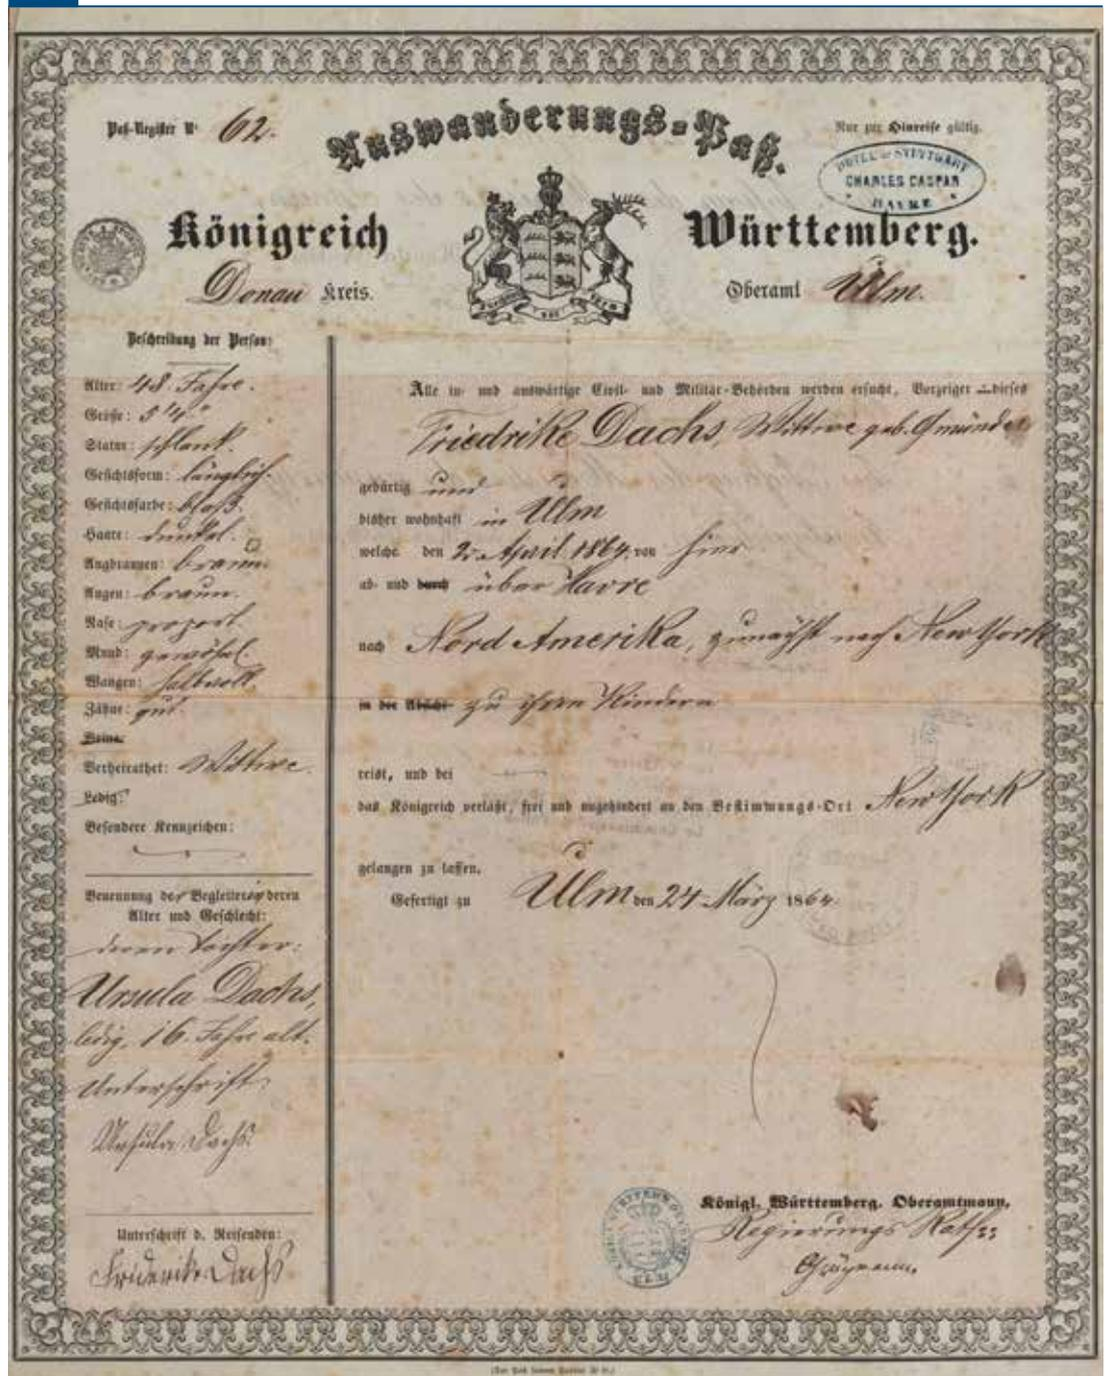 Paß-Register No 62.
Auswanderungs-Paß.
Nur zur Hinreise gültig.
HOTEL de STUTTGART
CHARLES CASPAR
HAVRE
Königreich Württemberg.
Donau Kreis.
Oberamt Ulm.
Beschreibung der Person:
Alter: 48. Jahre.
Größe: 5' 4."
Statur: schlank.
Gesichtsform: länglich.
Gesichtsfarbe: blaß.
Haare: dunkel.
Augbraunen: braun.
Augen: braun.
Nase: proport.
Mund: gewöhnl.
Wangen: halbvoll.
Zähne: gut.
Beine:
Verheirathet: Wittwe.
Ledig:
Besondere Kennzeichen:
Benennung der Begleiter deren
Alter und Geschlecht:
deren Tochter:
Ursula Dachs,
ledig, 16. Jahre alt.
Unterschrift:
Ursula Dachs.
Unterschrift d. Reisenden:
Friederike Dachs
Alle in- und auswärtige Civil- und Militär-Behörden werden ersucht, Vorzeiger dieses
Friedrike Dachs, Wittwe geb. Gmünder
gebürtig und
bisher wohnhaft in Ulm
welche den 2. April 1864. von hier
ab- und durch über Havre
nach Nord Amerika, zunächst nach New York
in der Absicht zu ihren Kindern
reist, und bei
das Königreich verläßt, frei und ungehindert an den Bestimmungs-Ort New York
gelangen zu lassen.
Gefertigt zu Ulm den 24 März 1864.
Königl. Württemberg. Oberamtmann,
Regierungs Rath